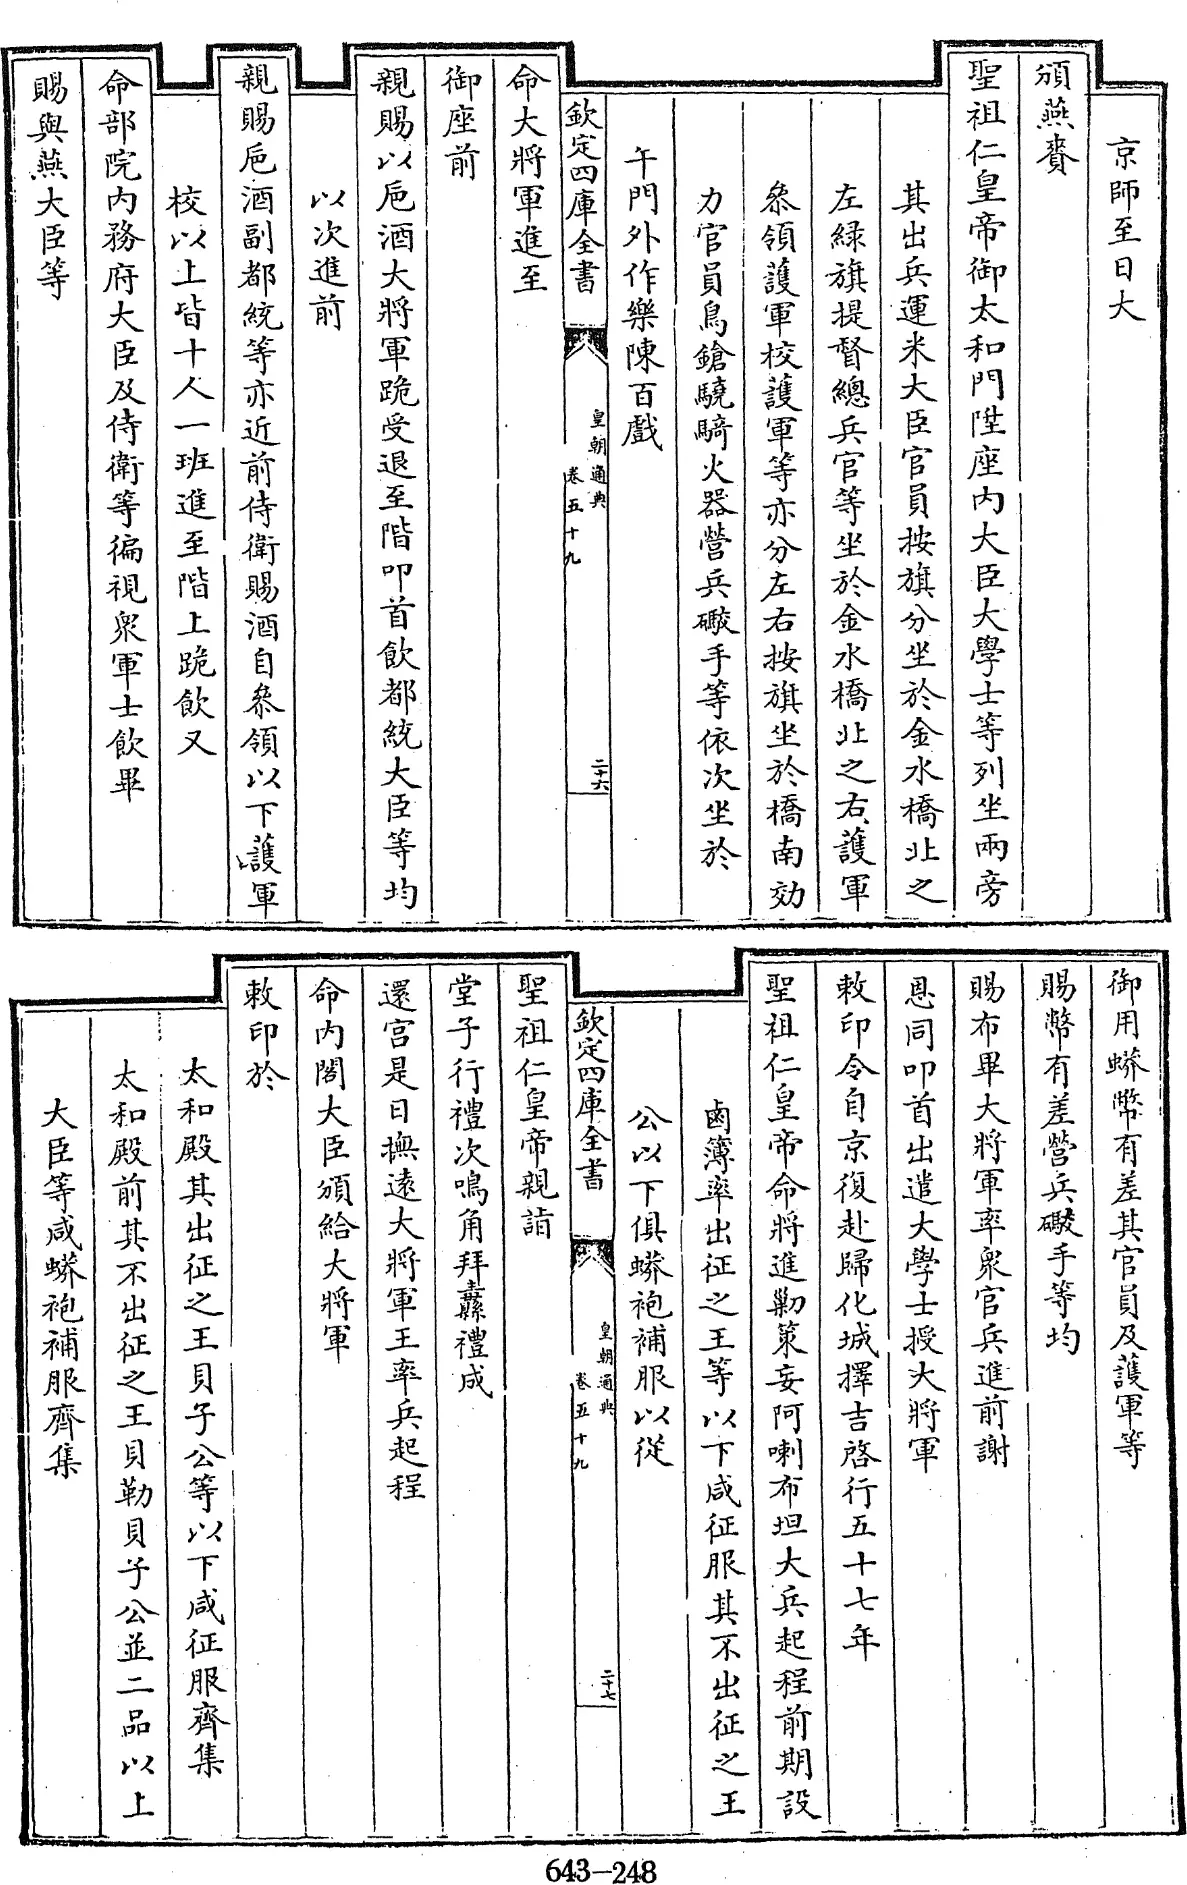 京師至日大
頒燕賚
聖祖仁皇帝御太和門陞座內大臣大學士等列坐兩旁
其出兵運米大臣官員按旗分坐於金水橋北之
左綠旗提督總兵官等坐於金水橋北之右護軍
叅領護軍校護軍等亦分左右按旗坐於橋南効
力官員鳥鎗驍騎火器營兵礮手等依次坐於
午門外作樂陳百戲
欽定四庫全書
皇朝通典
卷五十九
二十六
命大將軍進至
御座前
親賜以卮酒大將軍跪受退至階叩首飲都統大臣等均
以次進前
親賜卮酒副都統等亦近前侍衛賜酒自叅領以下護軍
校以上皆十人一班進至階上跪飲又
命部院內務府大臣及侍衛等徧視衆軍士飲畢
賜與燕大臣等
御用蟒幣有差其官員及護軍等
賜幣有差營兵礮手等均
賜布畢大將軍率衆官兵進前謝
恩同叩首出遣大學士授大將軍
敕印令自京復赴歸化城擇吉啓行五十七年
聖祖仁皇帝命將進勦策妄阿喇布坦大兵起程前期設
鹵簿率出征之王等以下咸征服其不出征之王
公以下俱蟒袍補服以從
欽定四庫全書
皇朝通典
卷五十九
二十七
聖祖仁皇帝親詣
堂子行禮次鳴角拜纛禮成
還宮是日撫遠大將軍王率兵起程
命內閣大臣頒給大將軍
敕印於
太和殿其出征之王貝子公等以下咸征服齊集
太和殿前其不出征之王貝勒貝子公並二品以上
大臣等咸蟒袍補服齊集
643-248